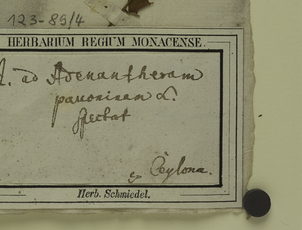 123-89/4
HERBARIUM REGIUM MONACENSE.
A. ad Adenantheram
pavoninam L.
spectat
ex Ceylona.
Herb. Schmiedel.